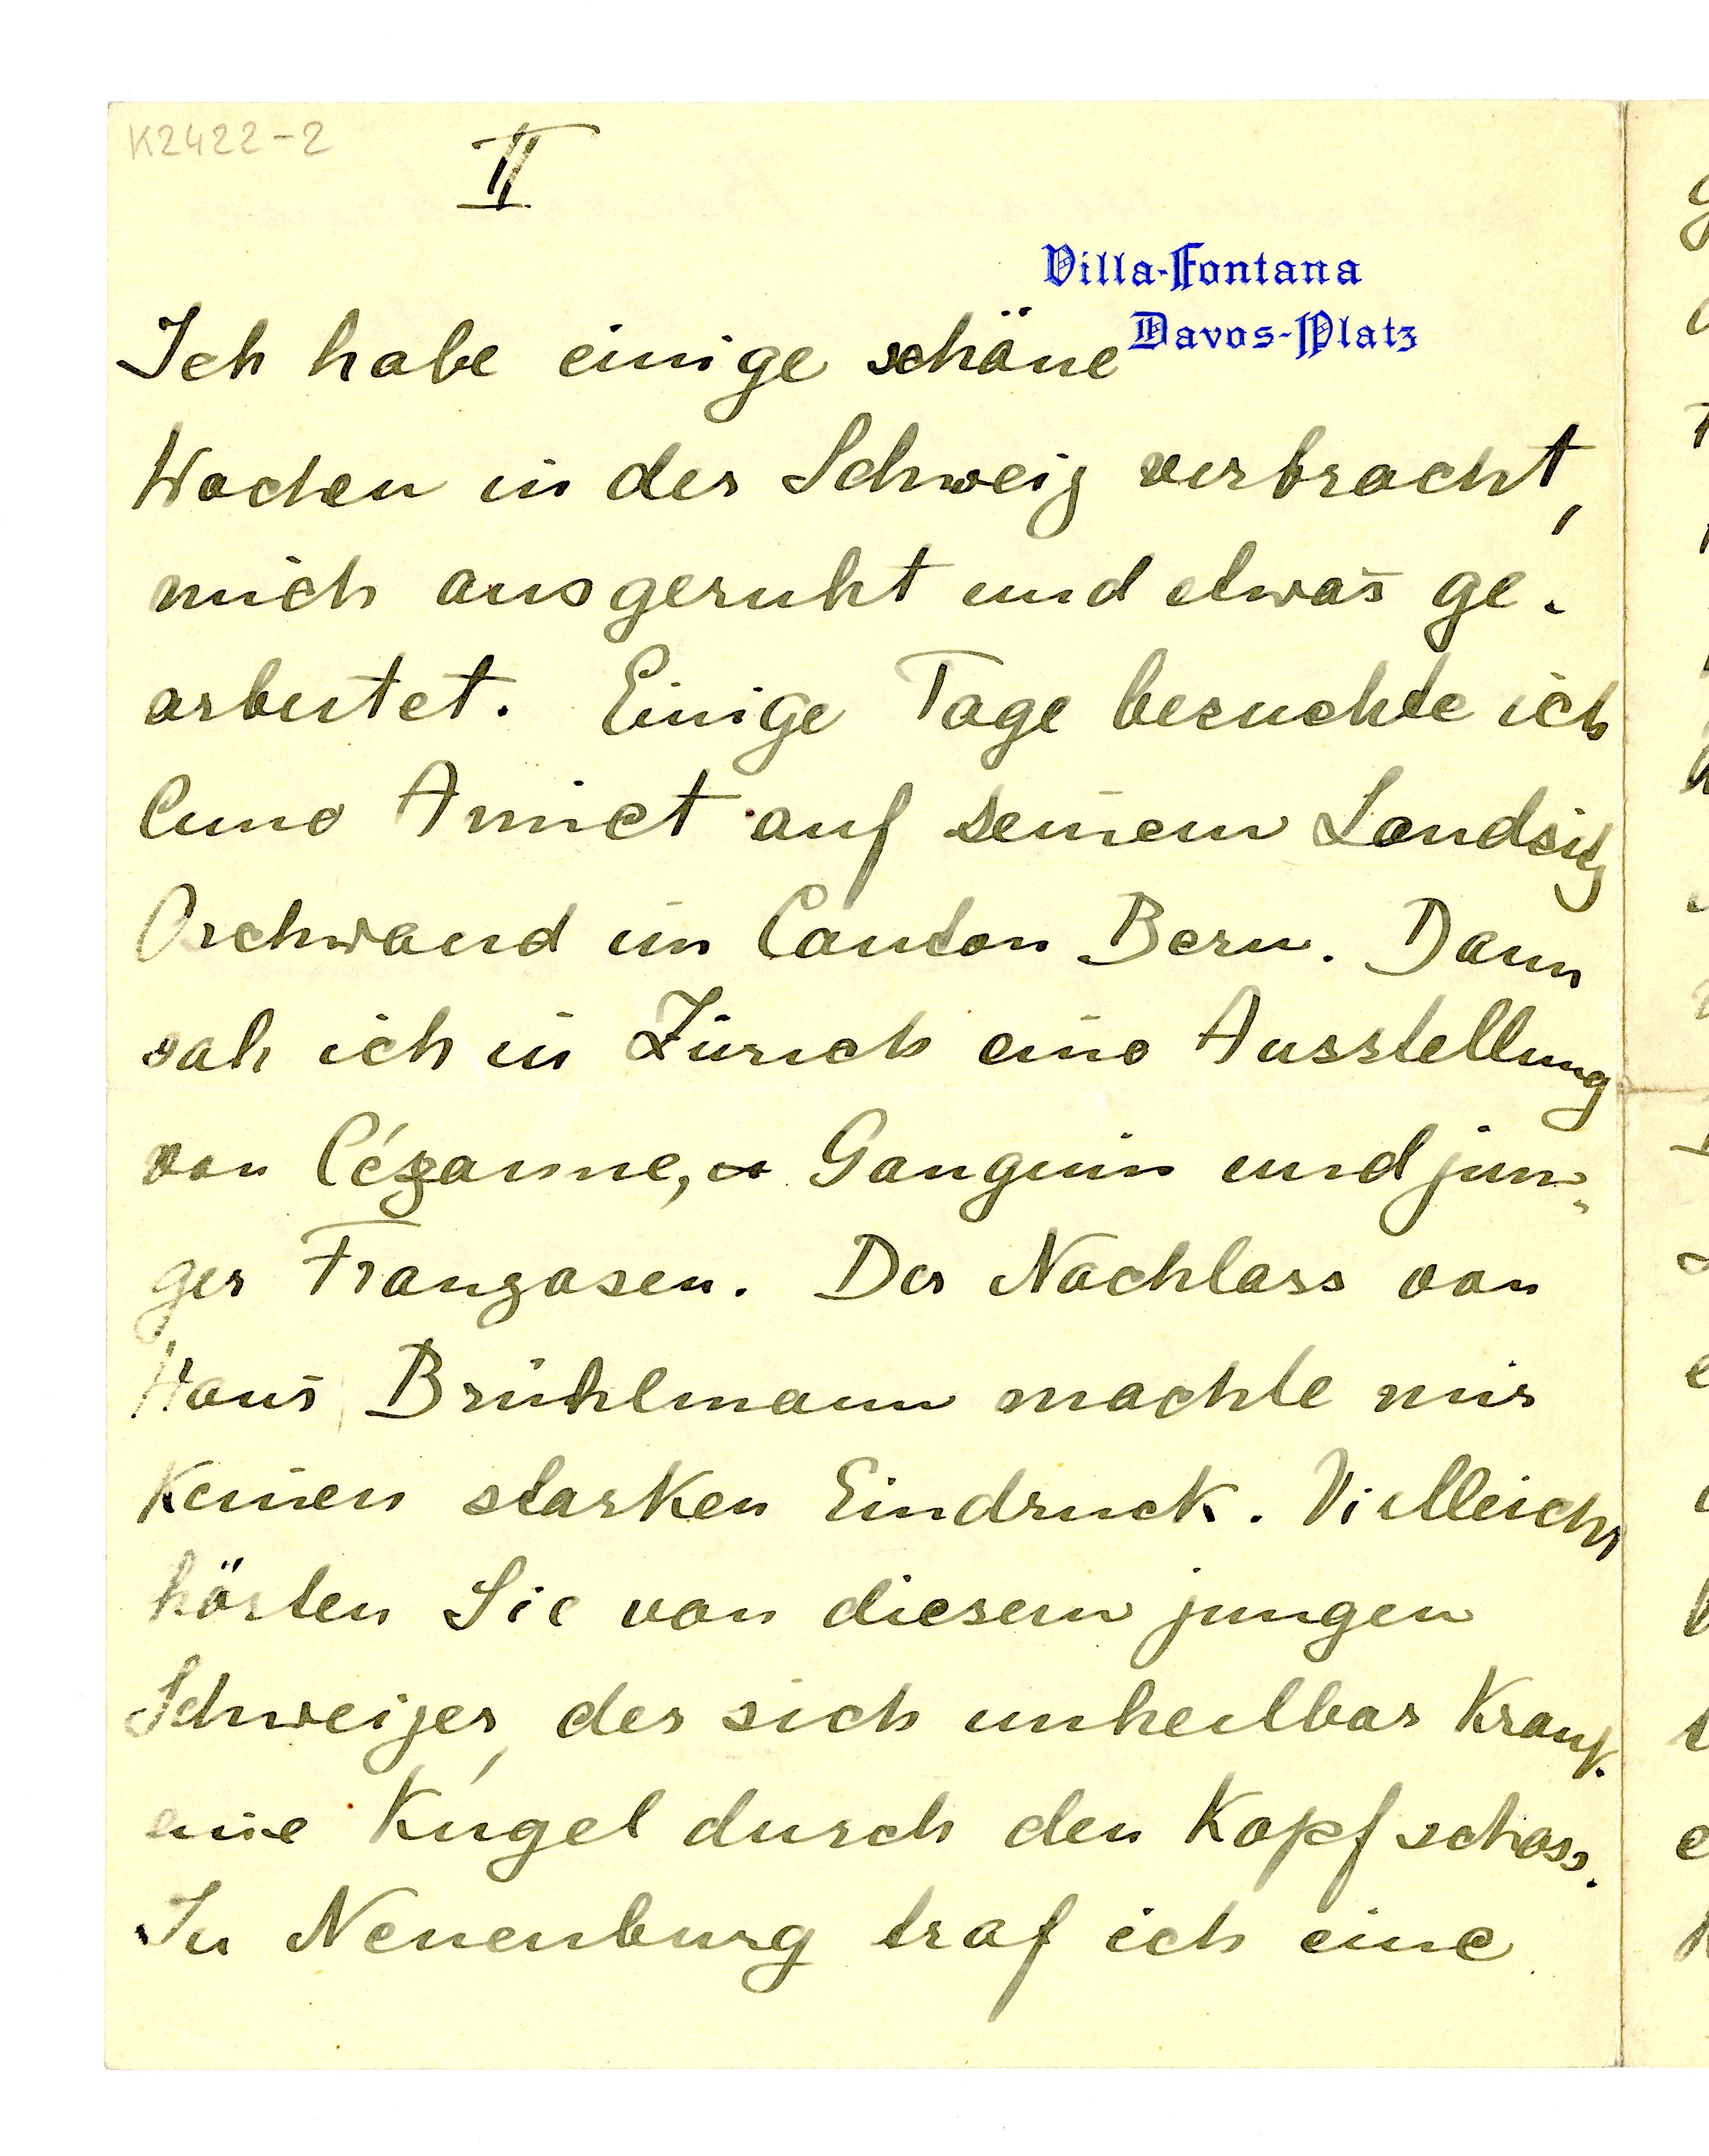 K2422-2
II
Villa-Fontana
Davos-Platz
Ich habe einige schöne
Wochen in der Schweiz verbracht,
mich ausgeruht und etwas ge-
arbeitet. Einige Tage besuchte ich
Cuno Amiet auf seinem Landsitz
Oschwand im Canton Bern. Dann
sah ich in Zürich eine Ausstellung
von Cézanne, Gauguin und jun-
ger Franzosen. Der Nachlass von
Hans Brühlmann machte mir
keinen starken Eindruck. Vielleicht
hörten Sie von diesem jungen
Schweizer, der sich unheilbar krank
eine Kugel durch den Kopf schoss.
In Neuenburg traf ich eine